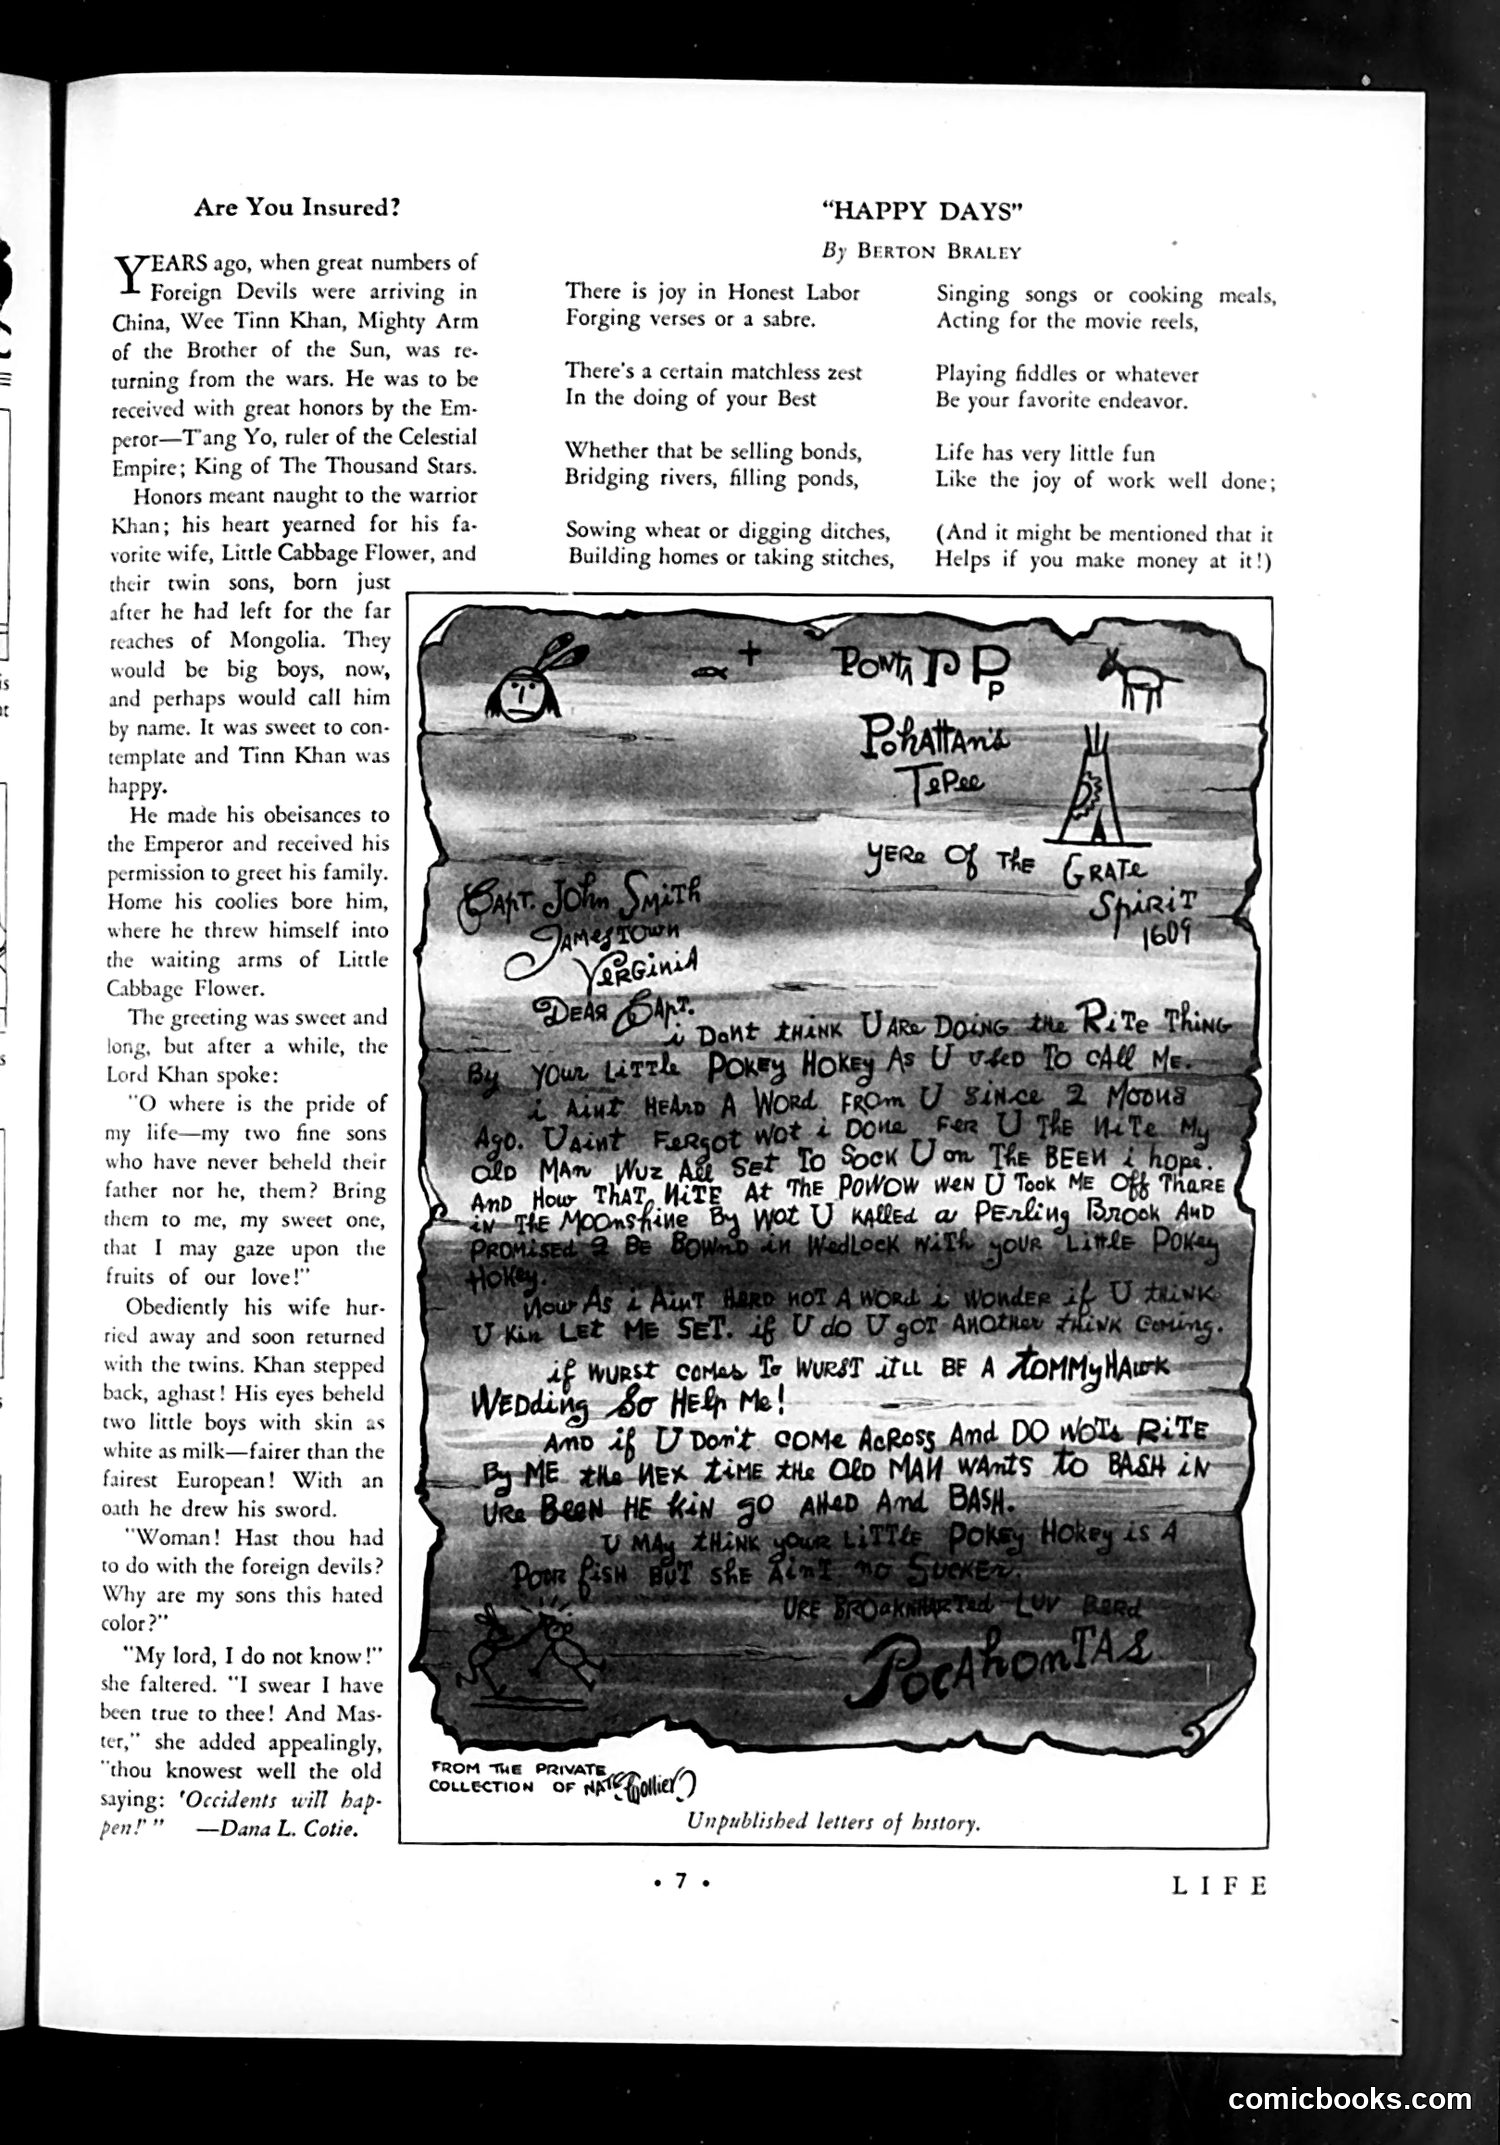 Are You Insured?
YEARS ago, when great numbers of
Foreign Devils were arriving in
China, Wee Tinn Khan, Mighty Arm
of the Brother of the Sun, was re-
turning from the wars. He was to be
received with great honors by the Em-
peror—T'ang Yo, ruler of the Celestial
Empire; King of The Thousand Stars.
Honors meant naught to the warrior
Khan; his heart yearned for his fa-
vorite wife, Little Cabbage Flower, and
their twin sons, born just
after he had left for the far
reaches of Mongolia. They
would be big boys, now,
and perhaps would call him
by name. It was sweet to con-
template and Tinn Khan was
happy.
He made his obeisances to
the Emperor and received his
permission to greet his family.
Home his coolies bore him,
where he threw himself into
the waiting arms of Little
Cabbage Flower.
The greeting was sweet and
long, but after a while, the
Lord Khan spoke:
"O where is the pride of
my life—my two fine sons
who have never beheld their
father nor he, them? Bring
them to me, my sweet one,
that I may gaze upon the
fruits of our love!"
Obediently his wife hur-
ried away and soon returned
with the twins. Khan stepped
back, aghast! His eyes beheld
two little boys with skin as
white as milk—fairer than the
fairest European! With an
oath he drew his sword.
"Woman! Hast thou had
to do with the foreign devils?
Why are my sons this hated
color?"
"My lord, I do not know!"
she faltered. "I swear I have
been true to thee! And Mas-
ter," she added appealingly,
"thou knowest well the old
saying: 'Occidents will hap-
pen!' " —Dana L. Cotie.
"HAPPY DAYS"
By BERTON BRALEY
There is joy in Honest Labor
Forging verses or a sabre.
There's a certain matchless zest
In the doing of your Best
Whether that be selling bonds,
Bridging rivers, filling ponds,
Sowing wheat or digging ditches,
Building homes or taking stitches,
Singing songs or cooking meals,
Acting for the movie reels,
Playing fiddles or whatever
Be your favorite endeavor.
Life has very little fun
Like the joy of work well done;
(And it might be mentioned that it
Helps if you make money at it!)
POhATTAn's
TePee
YERe Of THE GRATe
SpiRiT
1609
CApT. JOhn SMiTh
JAMesTOwn
VeRGiniA
DEAR CApT.
i DonT THINK U ARe DOiNG the RiTe THiNG
By YOur LiTTle POKEY HOKEY AS U USeD TO CAll ME.
i AinT HEArD A WORd FROM U SiNce 2 MOONS
AgO. U AinT FeRgOT WOT i DONe FeR U THE NiTe My
OlD MAn WUZ All SET TO SOCK U on THE BEEN i hope.
AND How THAT NiTE AT THE POWOW WeN U TOOK ME Off THARE
iN THE MOOnshine By WOT U KAlled a PERling BROOK AND
PROMiSED 2 BE BOWND in WedLOCK WiTH yOUR LiTTlE POKEy
HOKEy.
NOW AS i AinT HERD NOT A WORd i WONDER if U THiNK
U Kin LET ME SET. if U do U gOT ANOTHer THiNK COMing.
if WURST COMes To WURST iTLL BE A TOMMyHAwK
WEDding SO HElp Me!
AND if U DOn'T COMe AcROSS And DO WOTs RiTE
By ME the NEX TiME the OlD MAN WANTS TO BASH iN
URe BEEN HE KiN gO AHED And BASH.
U MAy THiNK yOUR LiTTlE POKEy HOKEy iS A
POOR fiSH BUT shE AinT no SUCKEr.
URE BROaKNHARTed LUV BeRd
POCAhOnTAS
FROM THE PRIVATE
COLLECTION OF NATE COLLIER
Unpublished letters of history.
• 7 •
LIFE
comicbooks.com